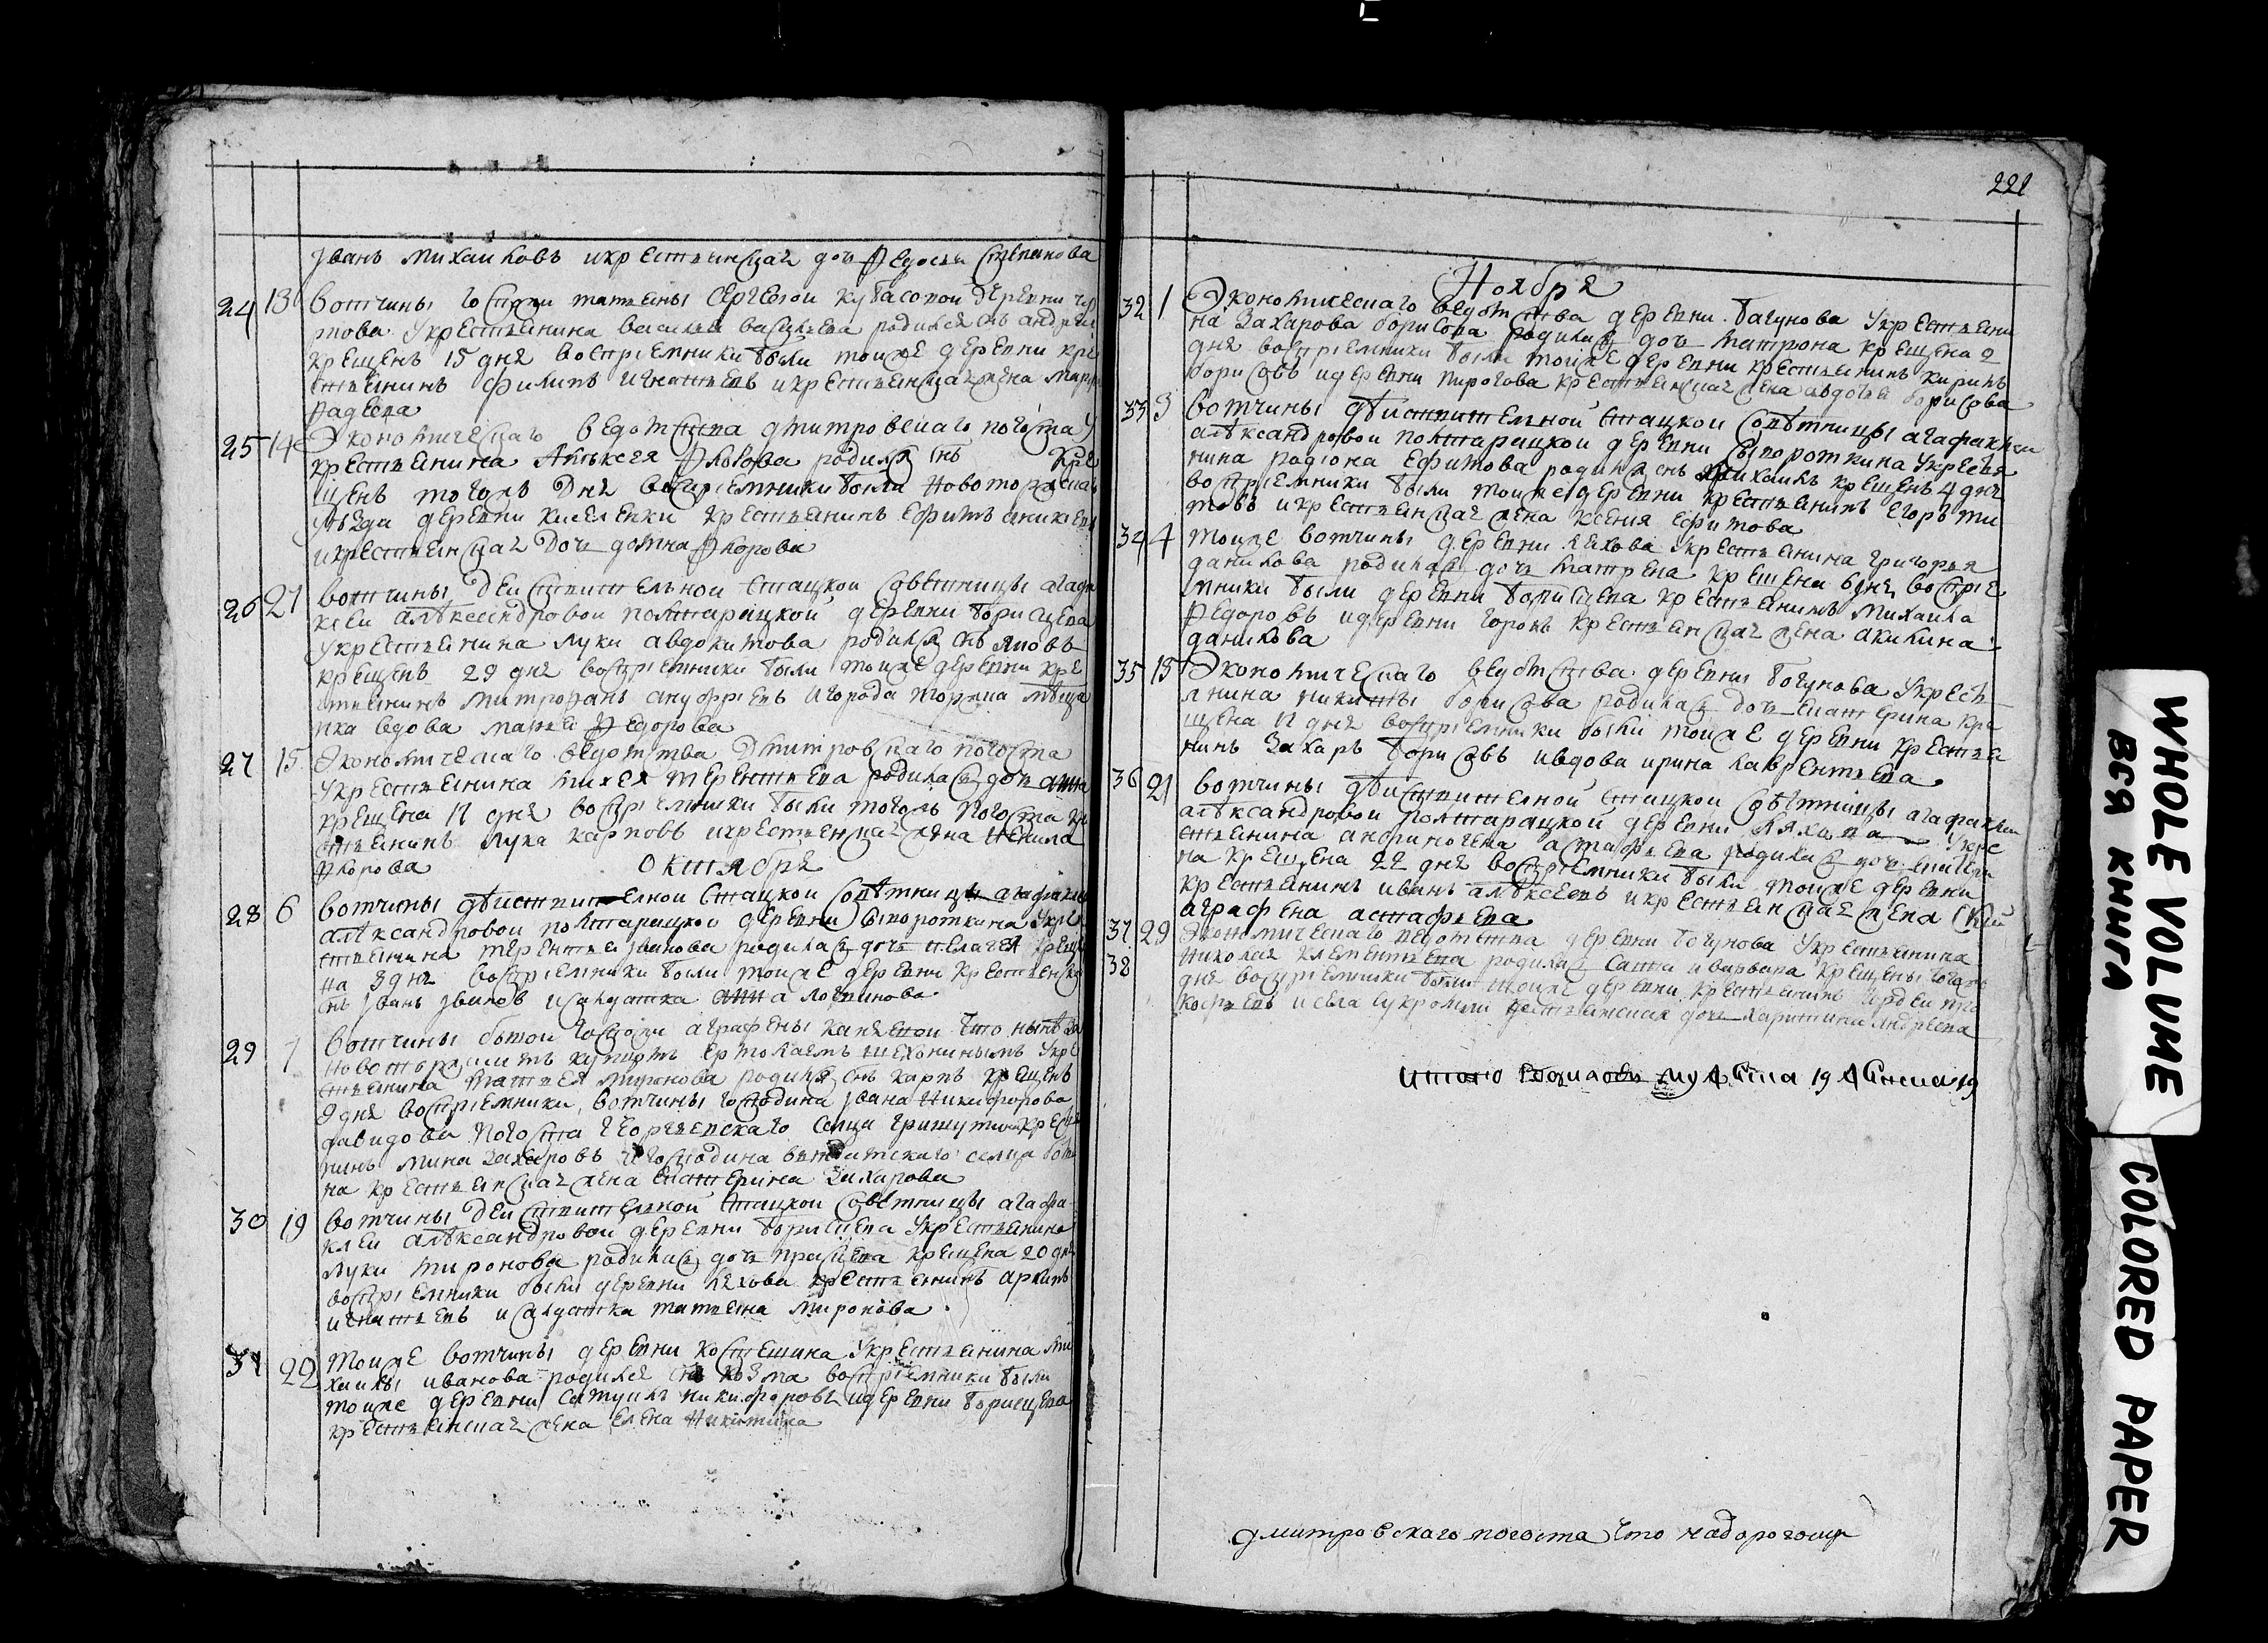 Іванъ Михаиловъ икрестьянская доч Федосья Степанова
24 13 вотчины госпожи татьяны Сергеевой кутасовой деревни
това укрестьянина василья васильева родился снъ андрей
крещенъ 15 дня воспрiемники были тоиже деревни кре
стьянинъ филипъ игнатьевъ икрестьянская жена марфа
фадеева
25 14 Экономическаго ведомства дмитровскаго погоста у
крестьянина Алексея Флорова родился снъ кре
щенъ тогожъ дня воспрiемники были новоторжскаго
уезда деревни киселевки крестьянинъ ефимъ аникiевъ
икрестьянская доч домна Флорова
26 27 вотчины действительной статской советницы агафо
клеи александровой полторацкой деревни борисцева
укрестьянина луки авдокимова родился снъ яковъ
крещенъ 29 дня воспрiемники были тоиже деревни кре
стьянинъ митрофанъ ануфрiевъ игорода торжка меща
нка вдова марья Федорова
27 15 Экономическаго ведомства дмитровскаго погоста
укрестьянина михея терентьева родилась доч анна
крещена 17 дня воспрiемники были тогожъ погоста кре
стьянинъ лука карповъ икрестьянская жена ненила
Флорова
октября
28 6 вотчины действителной статской советницы агафоклеи
александровой полторацкой деревни сывороткина укре
стьянина терентья iванова родилась доч пелагея креще
на 8 дня воспрiемники были тоиже деревни крестьяни
нъ Iванъ Iвановъ исалдатка анна логвинова
29 7 вотчины бытой госпожи аграфены что ныне за
новоторжскимъ купцомъ ермолаемъ укре
стьянина матвея миронова родился снъ карпъ крещенъ
9 дня воспрiемники вотчины господина Iвана никифорова
давидова погоста георгиевскаго селца кресть
нинъ мина захаровъ игосподина селца
на крестьянская жена екатерина захарова
30 19 вотчины действительной статской советницы агафо
клеи александровой деревни борисцева укрестьянина
луки миронова родилась доч прасковья крещена 20 дня
воспрiемники были деревни ляхова крестьянинъ архипъ
игнатьевъ исалдатка татьяна миронова
31 22 тоиже вотчины деревни костешина укрестьянина ми
хаилы иванова родился снъ козма воспрiемники были
тоиже деревни самуилъ никифоровъ идеревни борисцева
крестьянская жена елена никитина
221
Ноября
32 1 Экономическаго ведомства деревни багунова укрестьяни
на захарова борисова родилась доч матрона крещена 2
дня воспрiемники были тоиже деревни крестьянинъ кирилъ
борисовъ идеревни пирогова крестьянская жена авдотья борисова
33 3 вотчины действителной статской советницы агафоклеи
александровой полторацкой деревни сывороткина укрестья
нина радиона ефимова родился снъ михаилъ крещенъ 4 дня
воспрiемники были тоиже деревни крестьянинъ егоръ ти
товъ икрестьянская жена ксения ефимова
34 4 тоиже вотчины деревни ляхова укрестьянина григорья
данилова родилась доч матрена крещена 6 дня воспрiе
мники были деревни борисцева крестьянинъ михаила
Федоровъ идеревни горокъ крестьянская жена акилина
данилова
35 15 Экономическаго ведомства деревни богунова укресть
янина никиты борисова родилась доч екатерина кре
щена 17 дня воспрiемники были тоиже деревни крестьяни
нинъ захаръ борисовъ ивдова ирина лаврентьева
36 21 вотчины действителной статской советницы агафоклеи
александровой полторацкой деревни ляхова укре
стьянина андриногена астафьева родилась доч екатери
на крещена 22 дня воспрiемники были тоиже деревни
крестьянинъ иванъ алексеевъ икрестьянская жена
аграфена астафьева
37 29 Экономическаго ведомства деревни богунова укрестьянина
38 николая клементьева родились савва иварвара крещены тогожъ
дня воспрiемники были тоиже деревни крестьянинъ
исела крестьянская доч харитина андреева
Итого родилось муж: пола 19 женска 19
дмитровскаго погоста что